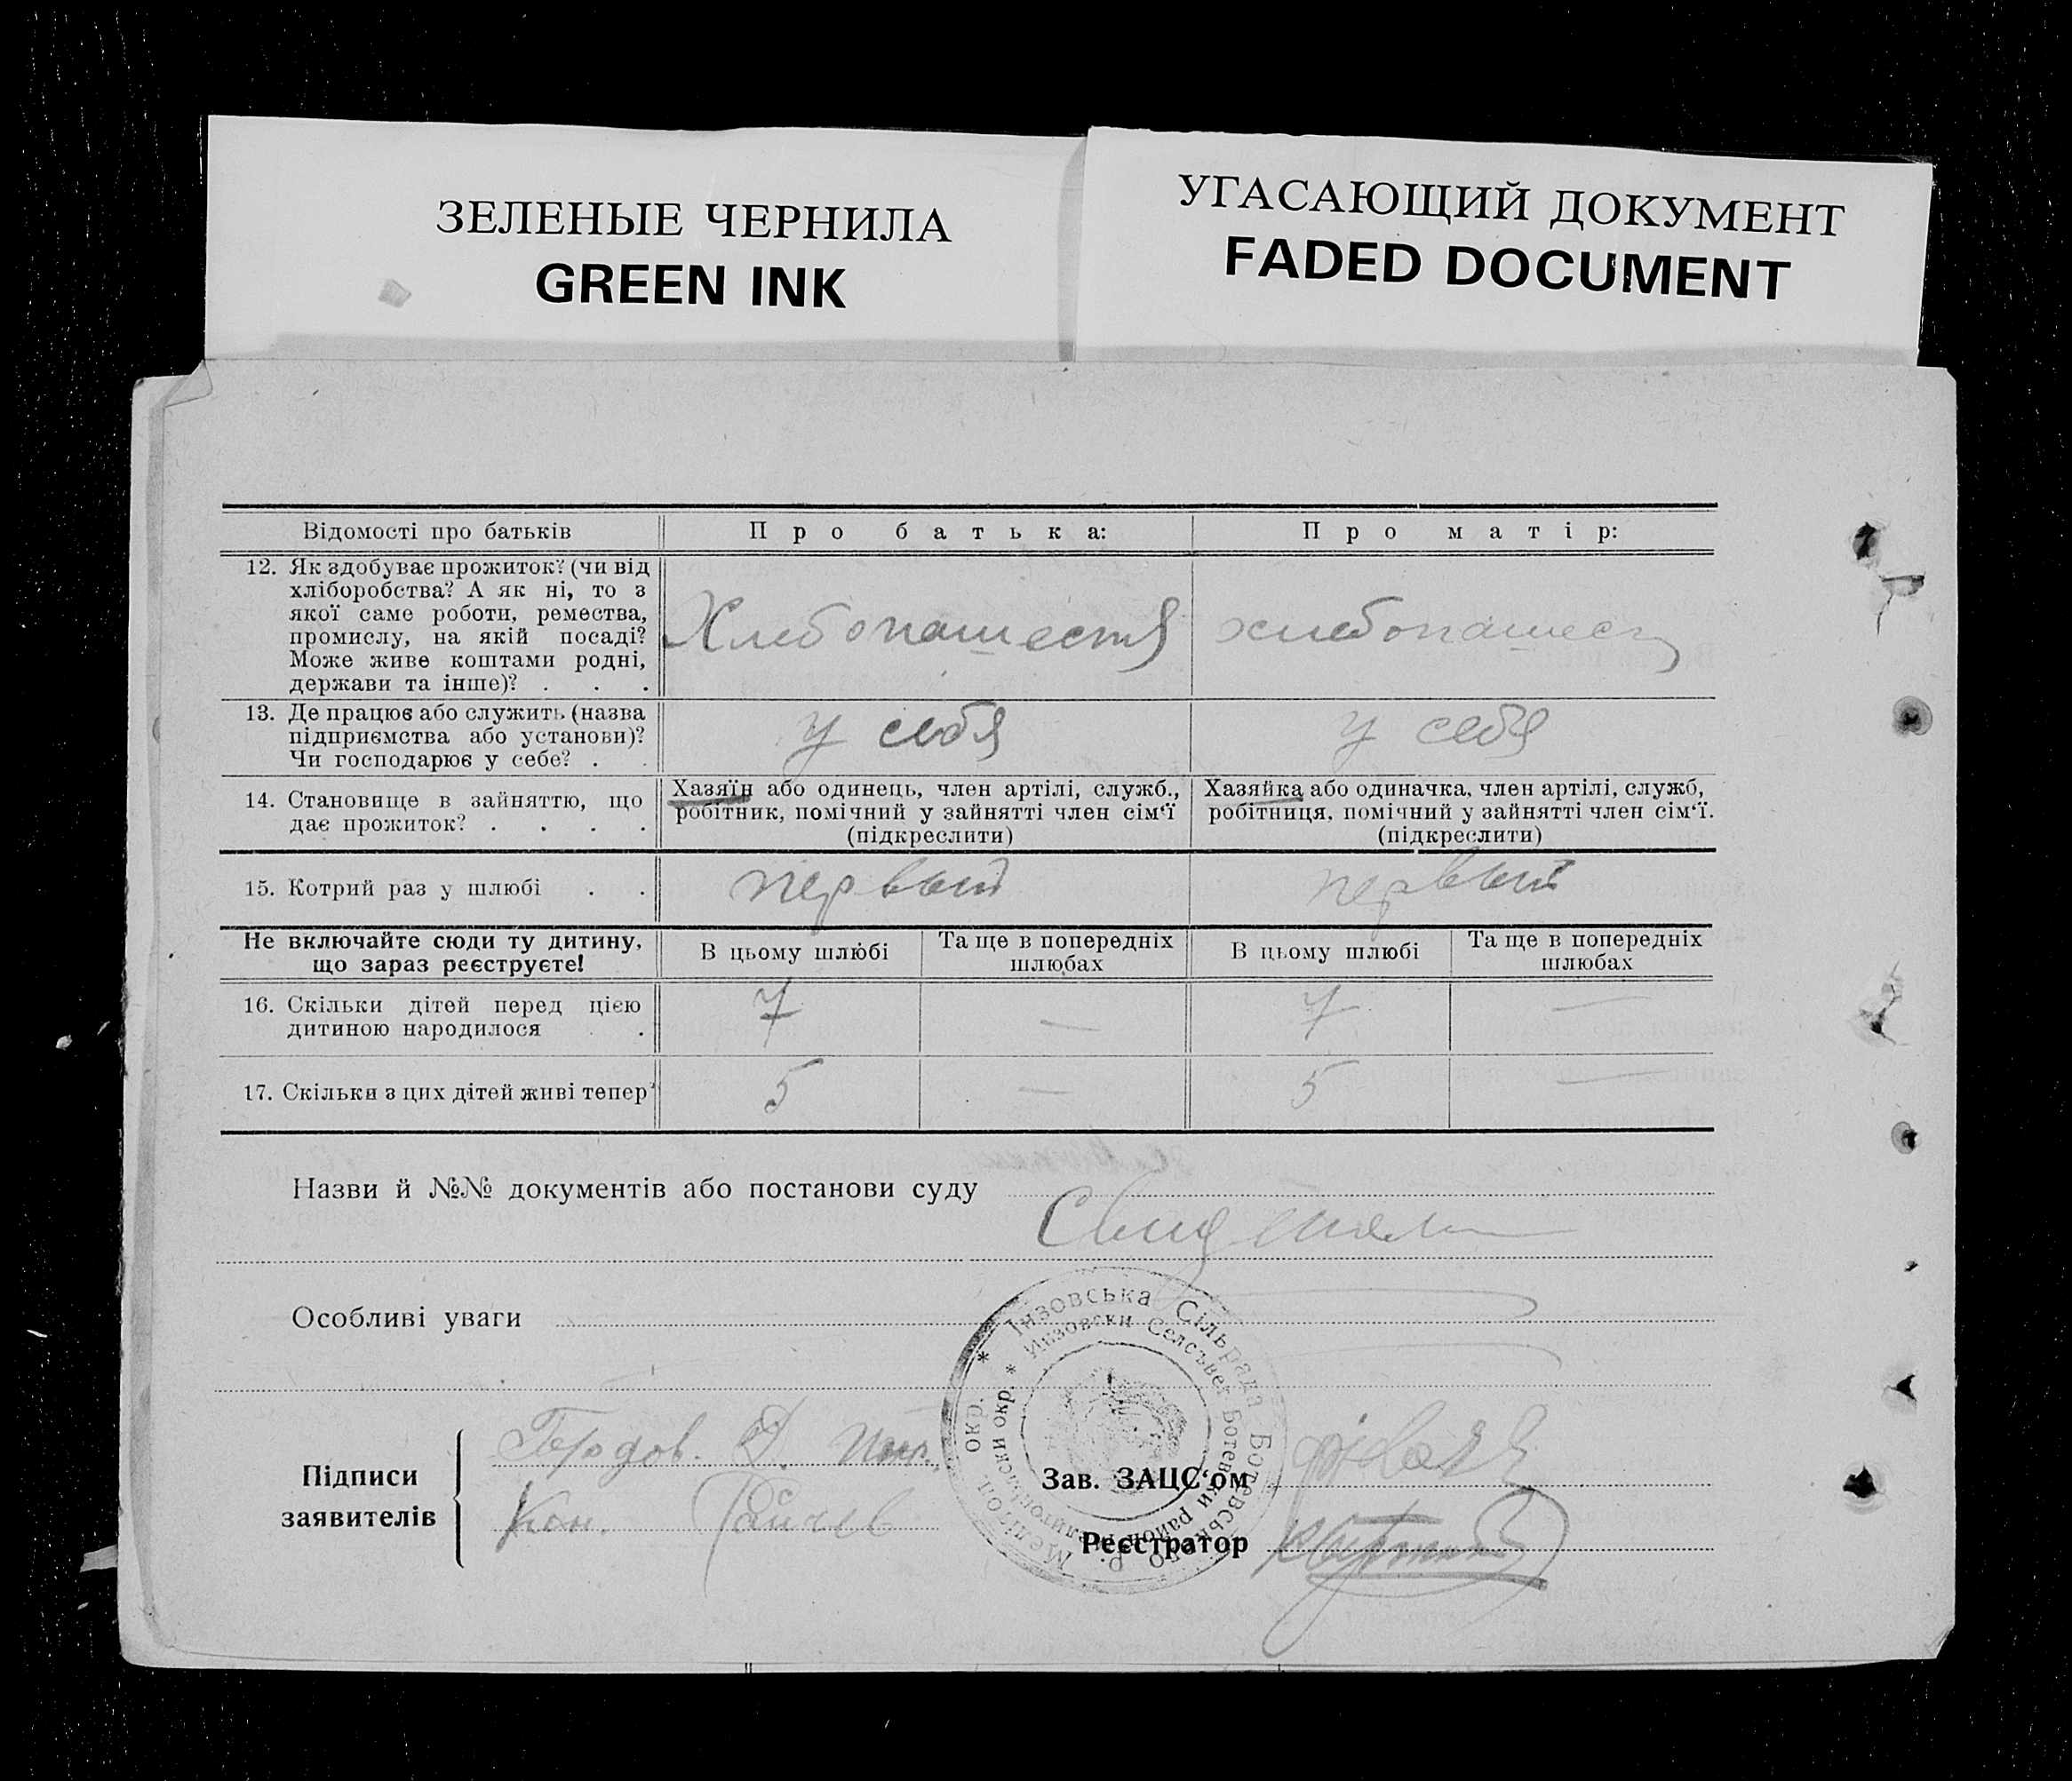 ЗЕЛЕНЫЕ ЧЕРНИЛА
GREEN INK
УГАСАЮЩИЙ ДОКУМЕНТ
FADED DOCUMENT
Відомості про батьків
Про батька:
Про матір:
12. Як здобуває прожиток? (чи від
хліборобства? А як ні, то з
якої саме роботи, ремества,
промислу, на якій посаді?
Може живе коштами родні,
держави та інше)? . . .
Хлебопашеств
хлебопашест
13. Де працює або служить (назва
підприємства або установи)?
Чи господарює у себе? . .
у себя
у себя
14. Становище в зайняттю, що
дає прожиток? . . . .
Хазяїн або одинець, член артілі, служб.,
робітник, помічний у зайнятті член сім'ї
(підкреслити)
Хазяйка або одиначка, член артілі, служб,
робітниця, помічний у зайнятті член сім'ї.
(підкреслити)
15. Котрий раз у шлюбі . .
первый
первый
Не включайте сюди ту дитину,
що зараз реєструєте!
В цьому шлюбі
Та ще в попередніх
шлюбах
В цьому шлюбі
Та ще в попередніх
шлюбах
16. Скільки дітей перед цією
дитиною народилося .
7
—
7
—
17. Скільки з цих дітей живі тепер?
5
—
5
—
Назви й №№ документів або постанови суду
Особливі уваги
* Інзовська Сільрада Ботєвського р. Мелітоп. окр.
* Инзовски Селсъвет Ботевски район Мелитопълски окр.
Підписи
заявителів
Д.
Кон. Райчев
Зав. ЗАЦС'ом
Реєстратор